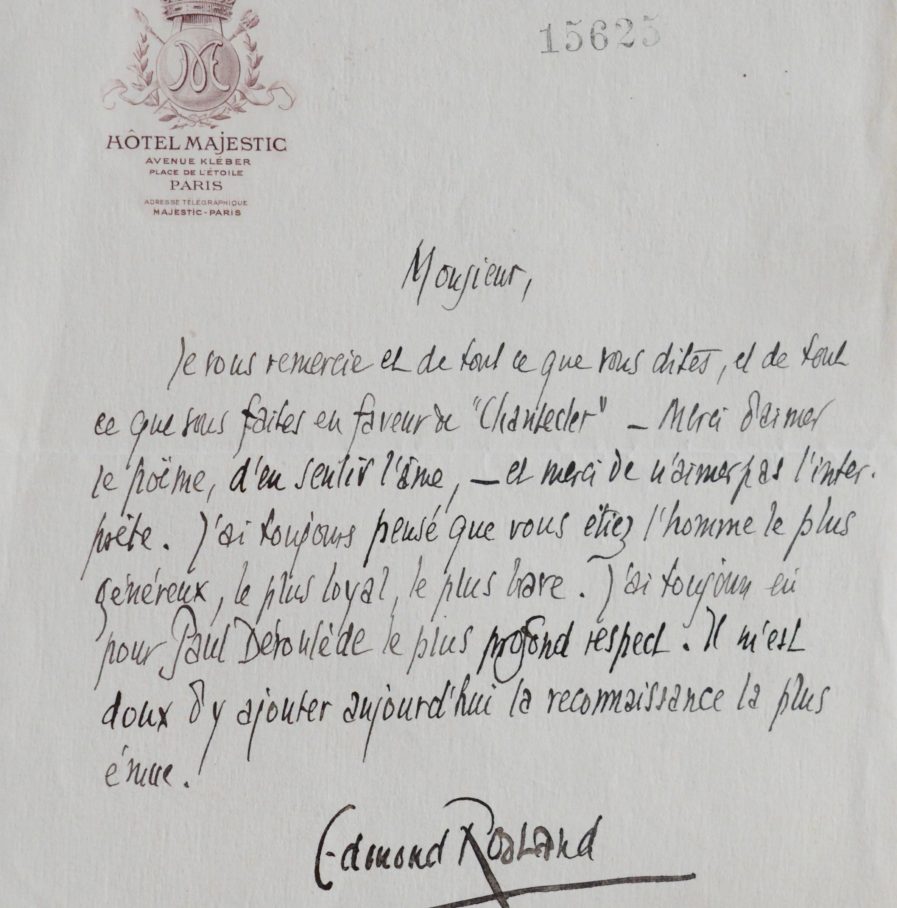 15625
HÔTEL MAJESTIC
AVENUE KLÉBER
PLACE DE L'ÉTOILE
PARIS
ADRESSE TÉLÉGRAPHIQUE
MAJESTIC-PARIS
Monsieur,
Je vous remercie et de tout ce que vous dites, et de tout
ce que vous faites en faveur de "Chantecler" — Merci d'aimer
le poëme, d'en sentir l'âme, — et merci de n'aimer pas l'inter-
prète. J'ai toujours pensé que vous étiez l'homme le plus
généreux, le plus loyal, le plus brave. J'ai toujours eu
pour Paul Déroulède le plus profond respect. Il m'est
doux d'y ajouter aujourd'hui la reconnaissance la plus
émue.
Edmond Rostand